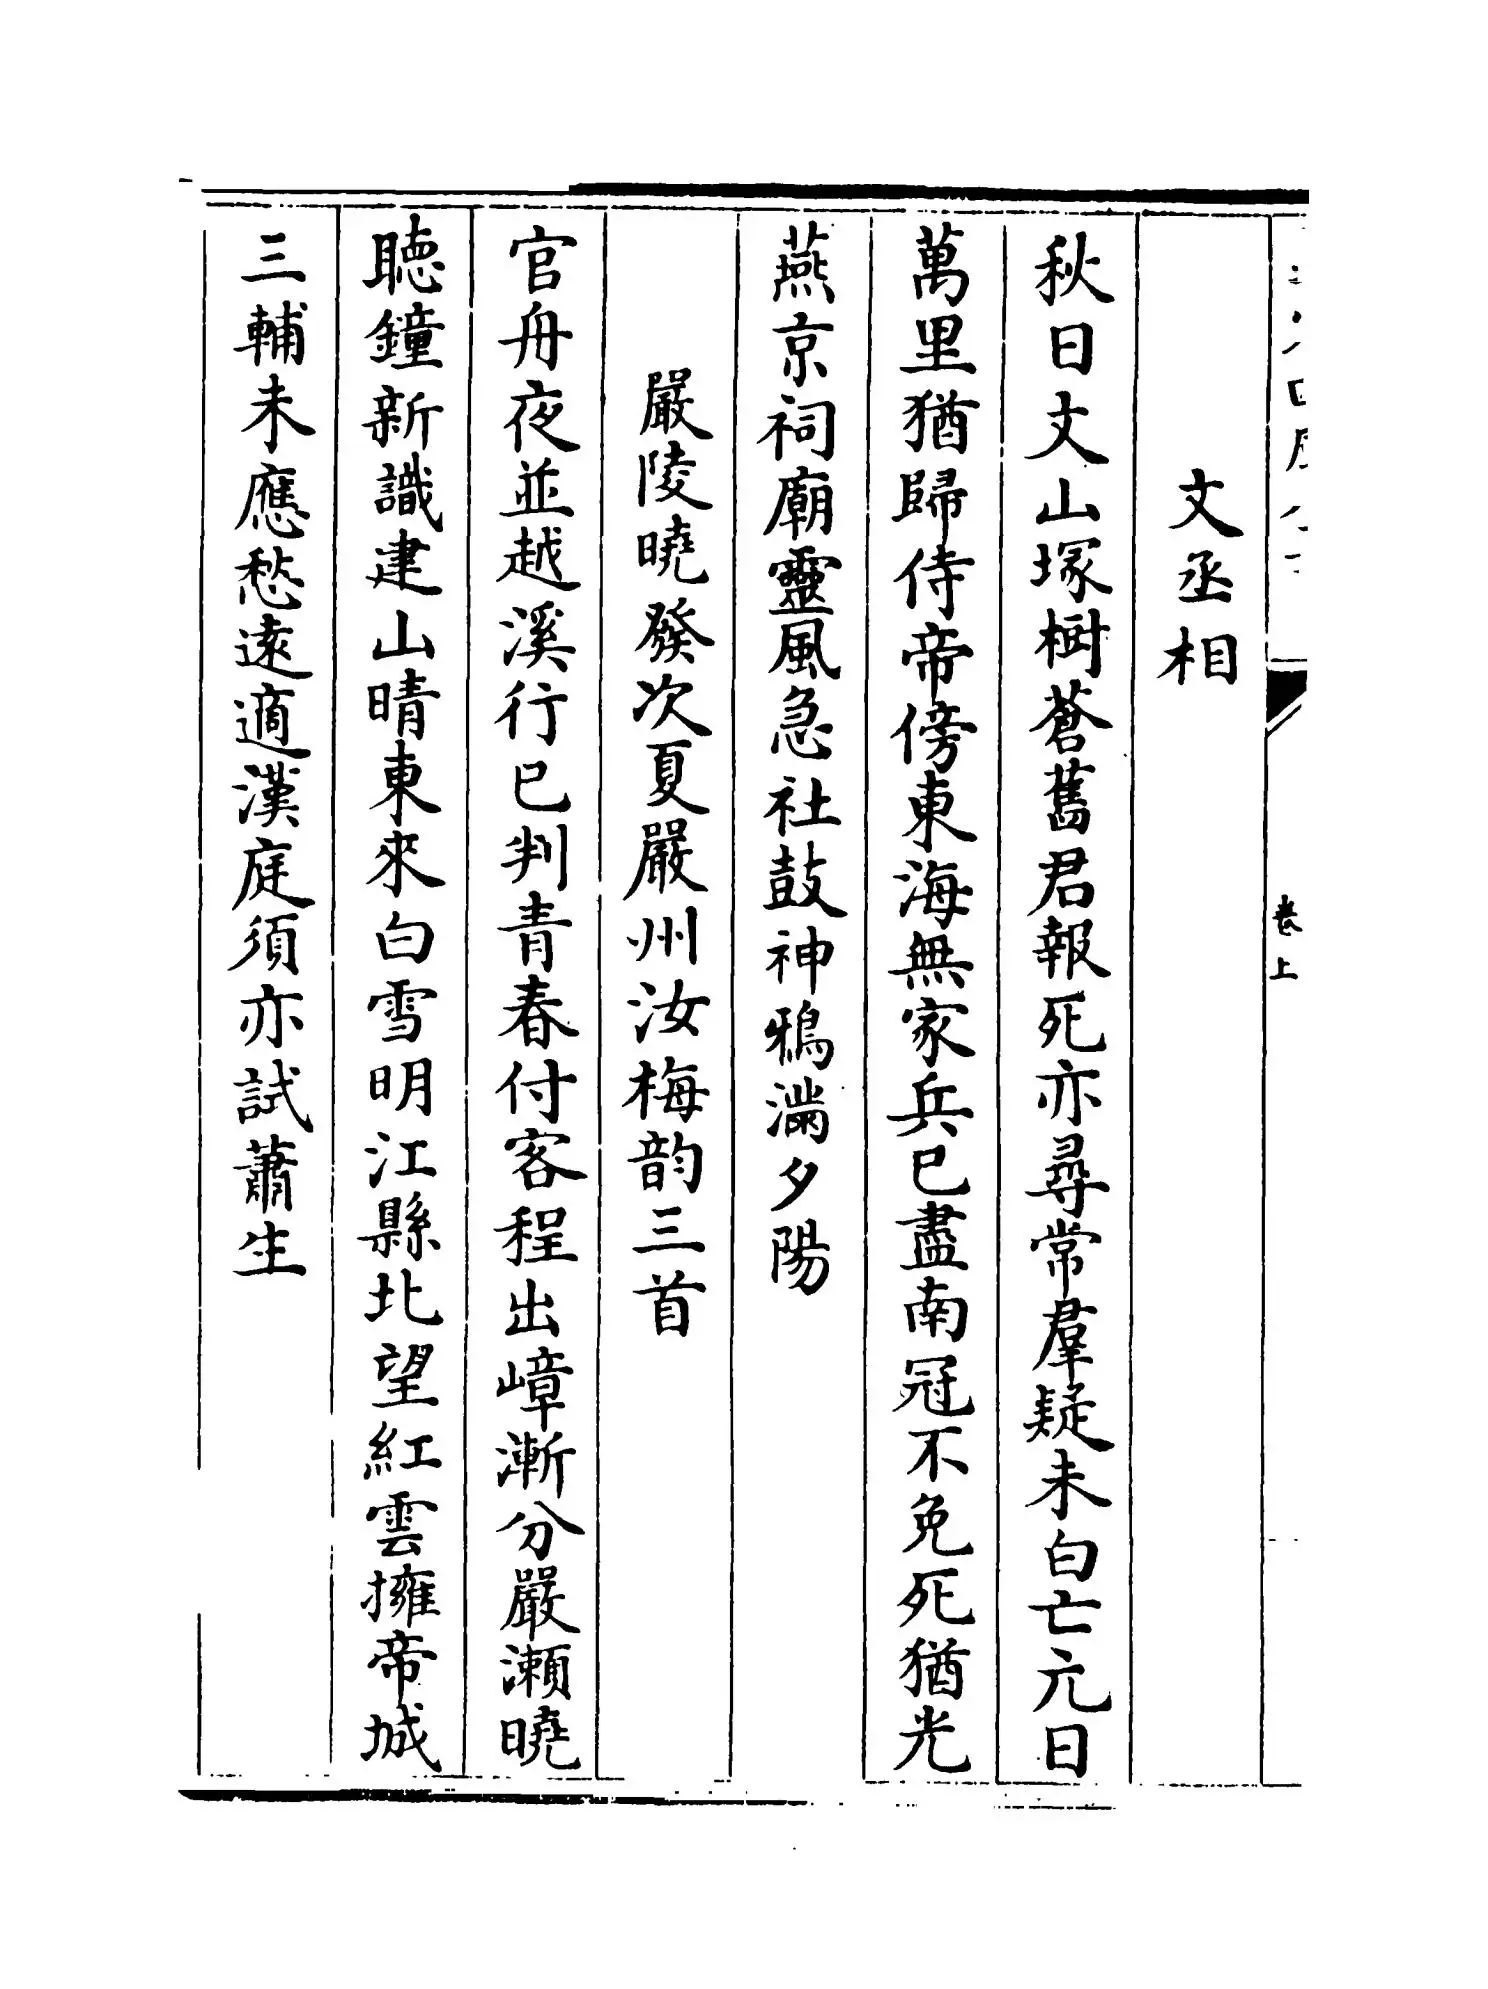 卷上
文丞相
秋日丈山塚樹蒼舊君報死亦尋常羣疑未白亡元日
萬里猶歸侍帝傍東海無家兵已盡南冠不免死猶光
燕京祠廟靈風急社鼓神鴉滿夕陽
嚴陵曉發次夏嚴州汝梅韵三首
官舟夜並越溪行已判青春付客程出嶂漸分嚴瀨曉
聽鐘新識建山晴東來白雪明江縣北望紅雲擁帝城
三輔未應愁遠適漢庭須亦試蕭生